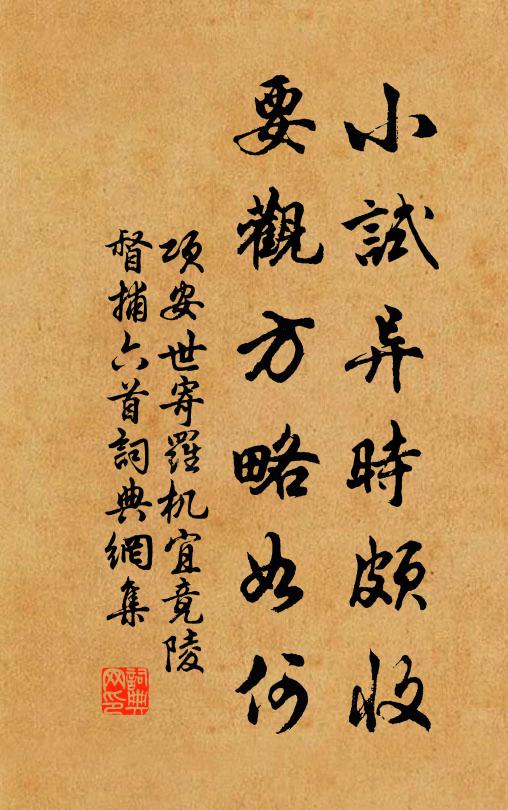 小試异時頗收
要觀方略如何
項安世寄羅机宜竟陵
督捕六首詞典網集
詞典網印